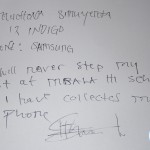 13 INDIGO
: SAMSUNG
will never step my
at MBALA HI sch
I have collected m
phone